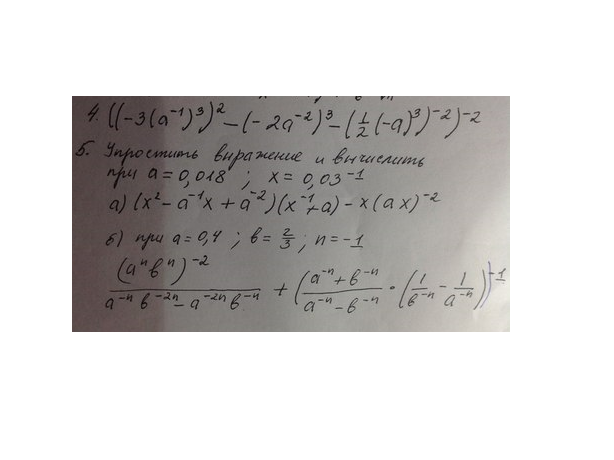 4. ((-3(a⁻¹)³)² - (-2a⁻²)³ - (1/2(-a)³)⁻²)⁻²
5. Упростить выражение и вычислить
при a = 0,018 ; x = 0,03⁻¹
а) (x² - a⁻¹x + a⁻²)(x⁻¹ + a) - x(ax)⁻²
б) при a = 0,4 ; b = 2/3 ; n = -1
(aⁿbⁿ)⁻² / (a⁻ⁿb⁻²ⁿ - a⁻²ⁿb⁻ⁿ) + ((a⁻ⁿ + b⁻ⁿ)/(a⁻ⁿ - b⁻ⁿ) · (1/b⁻ⁿ - 1/a⁻ⁿ))⁻¹